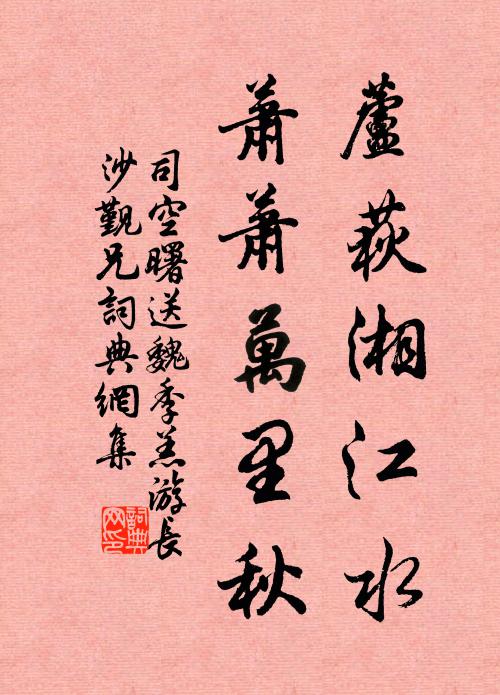 蘆荻湘江水
蕭蕭萬里秋
司空曙送魏季羔游長
沙覲兄詞典網集
詞典
网印